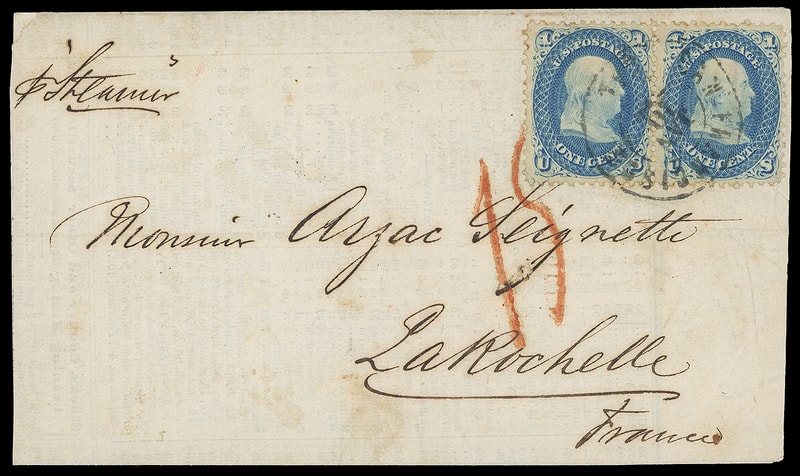 p Steamer
1 1
U.S. POSTAGE
ONE CENT
U S
1 1
U.S. POSTAGE
ONE CENT
U S
15
Monsieur Arzac Seignette
La Rochelle
France